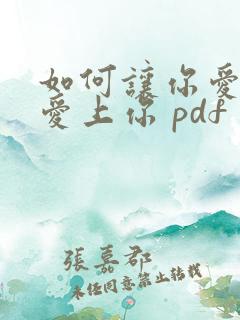 如何讓你愛
愛上你 pdf
張嘉郡
未经同意禁止转载